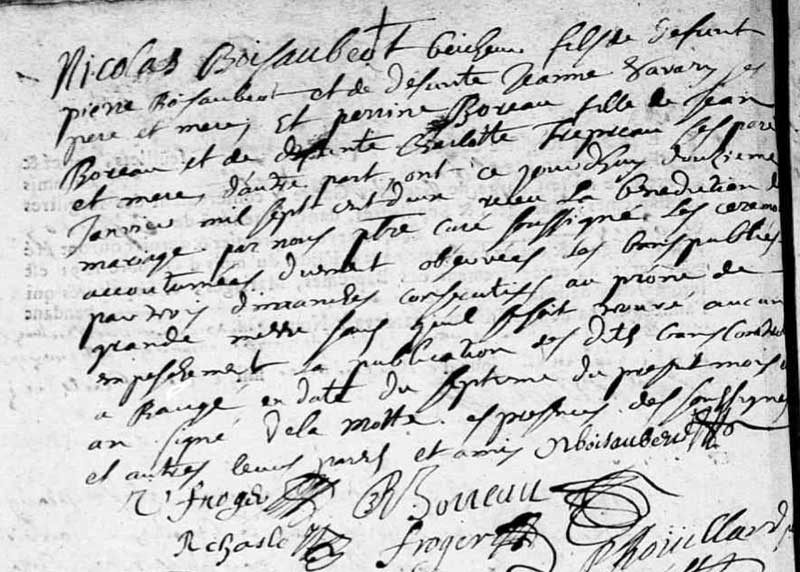 Nicolas Boisaubert bescheur fils de defunt
pierre Boisaubert et de defunte Jeanne Savary ses
pere et mere, Et perrine Boreau fille de Jean
Boreau et de defunte Charlotte Trepreau ses pere
et mere, d'autre part ont ce jourdhuy douzieme
Janvier mil sept cet d'un receu La benediction de
mariage par nous ptre curé soussigné Les ceremo
accoutumées dument observées Les bans publies
par trois dimanches consecutifs au prône de
grande messe sans quil se soit trouvé aucun
empeschement La publication des dits bans
a Raugé en date du septieme du present mois
an signé Dela Motte es presences des soussignes
et autres leurs parens et amis N boisaubert
R froger R Borreau
R chasle froger Rouillard